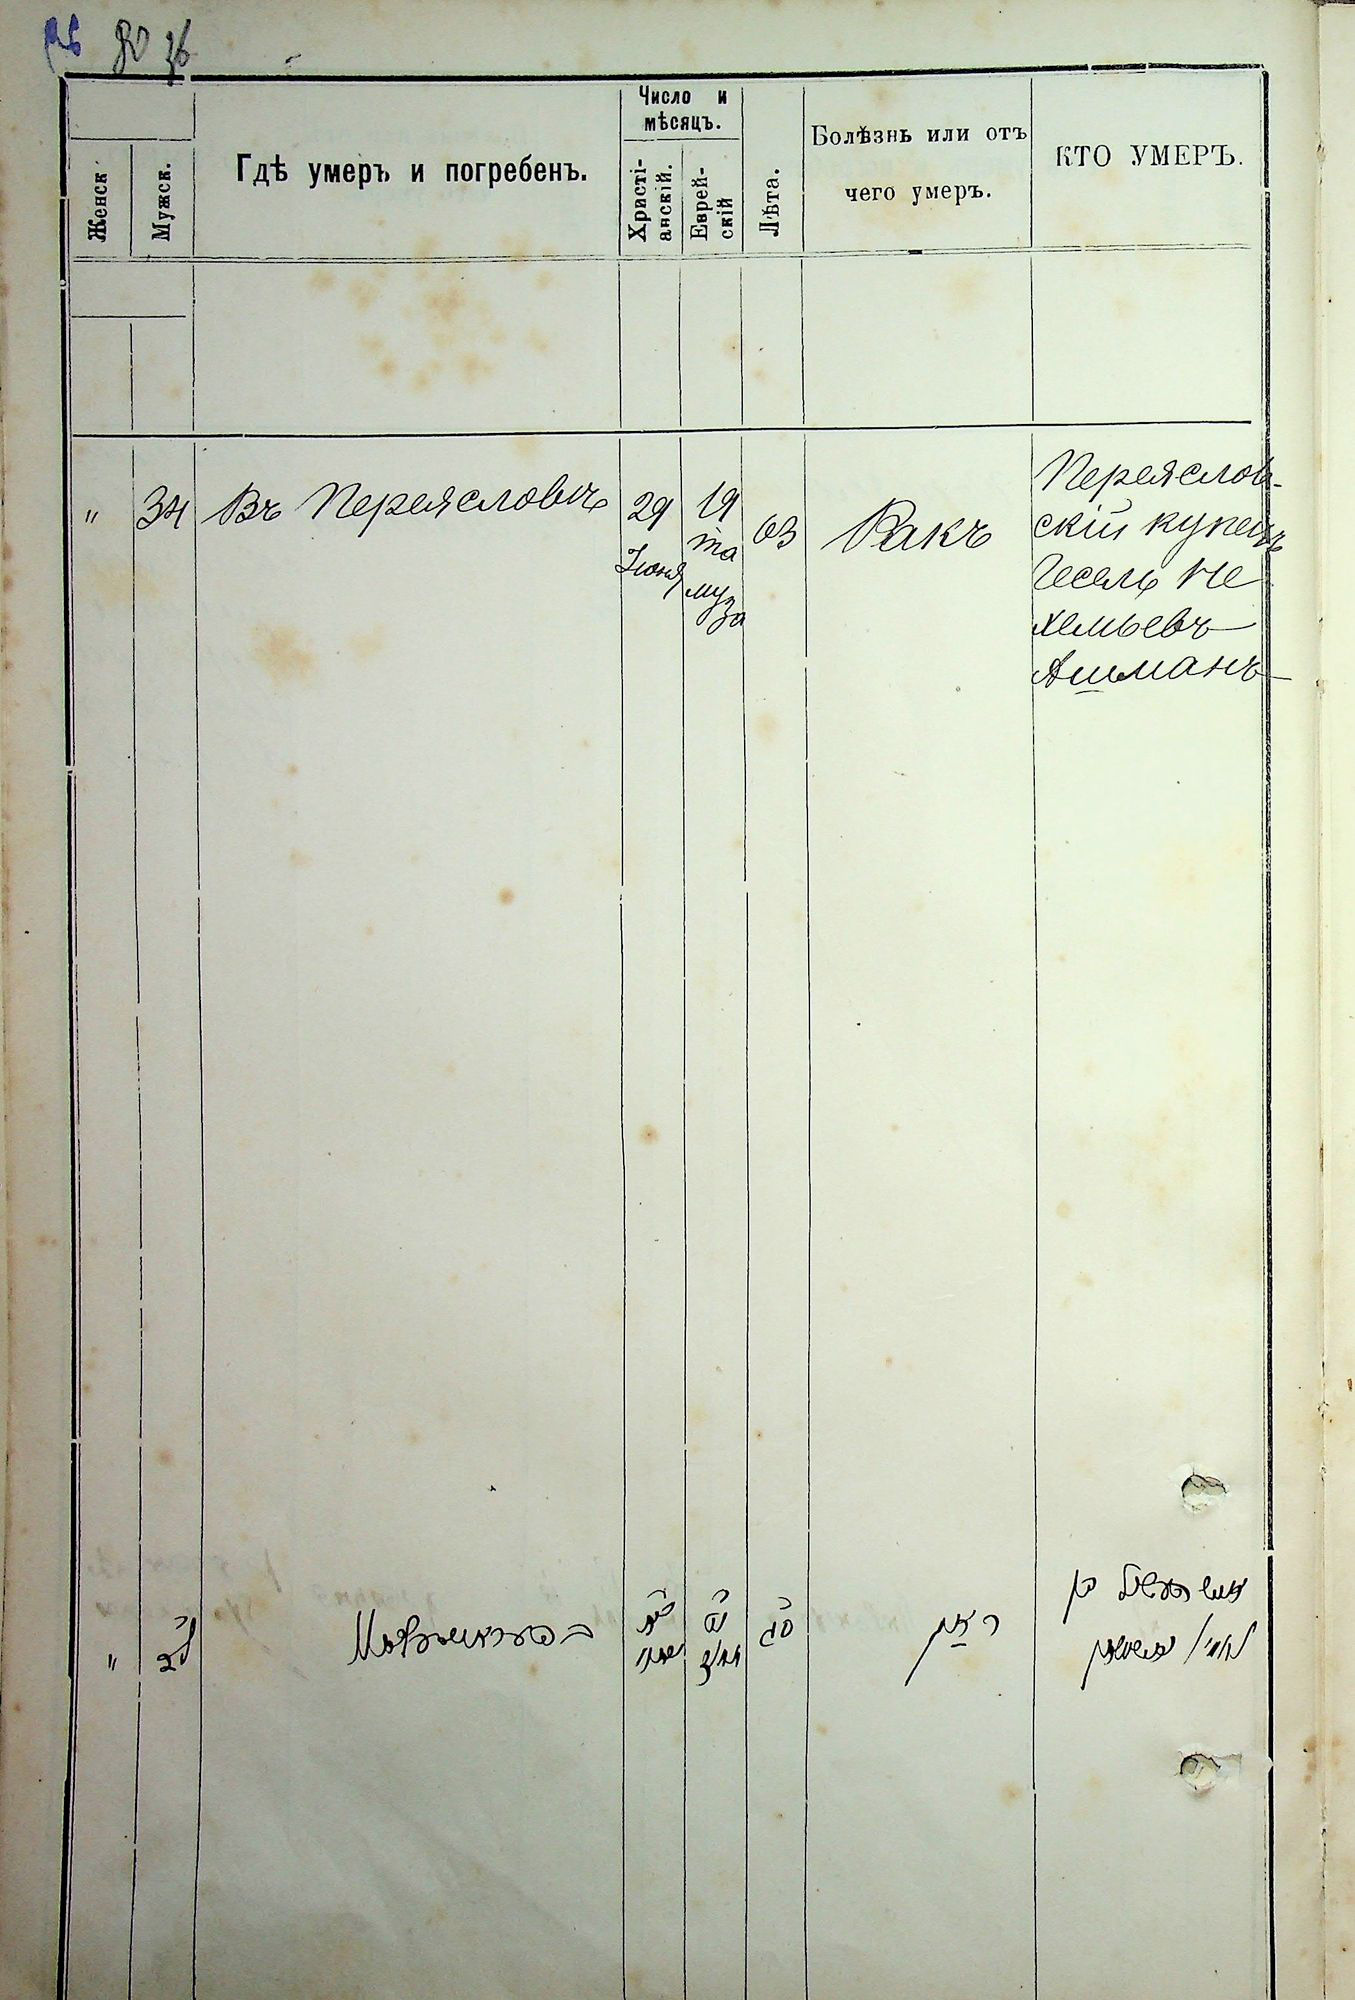 80 36
Женск
Мужск.
Гдѣ умеръ и погребенъ.
Число и
мѣсяцъ.
Христі-
анскій.
Еврей-
скій
Лѣта.
Болѣзнь или отъ
чего умеръ.
КТО УМЕРЪ.
" 34 Въ Переясловѣ
29
Іюня
19
та
муза
63
Ракъ
Переяслов-
скій купецъ
Гесель Не
хемьевъ
Ашманъ
"
לד
יוני
יט
תמוז
סג
ראק